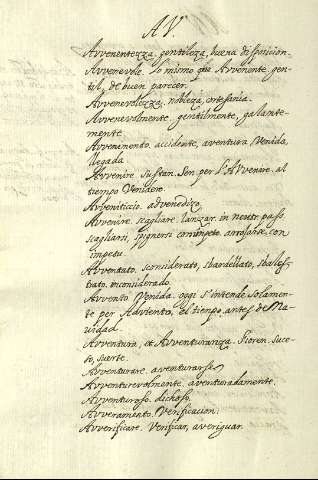 AV.
Avvenentezza, gentileza, buena disposicion.
Avvenevole. lo mismo que Avvenente, gen-
til, de buen parecer.
Avvenevolezza, nobleza, cortesania.
Avvenevolmente, gentilmente, galante-
mente
Avvenimento. accidente, aventura, Venida,
llegada
Avvenire. sustan. Sen per l'Avvenire. al
tiempo Venidero.
Avveniticcio. advenedizo
Avvenire. scagliare. lanzar. in neutr. pass.
scagliarsi, spignersi con impeto. arrojarse con
impetu.
Avventato. sconsiderato, sbardellato, sbales-
trato. inconsiderado.
Avvento Venida. oggi s'intende solamen-
te per Adviento, el tiempo antes de Na-
uidad
Avventura, et Avventuranza. Fioren. suce-
so, suerte.
Avventurare. aventurarse
Avventurevolmente. aventuradamente.
Avventuroso. dichoso.
Avveramento. Verificacion.
Avverificare. Verificar, averiguar.